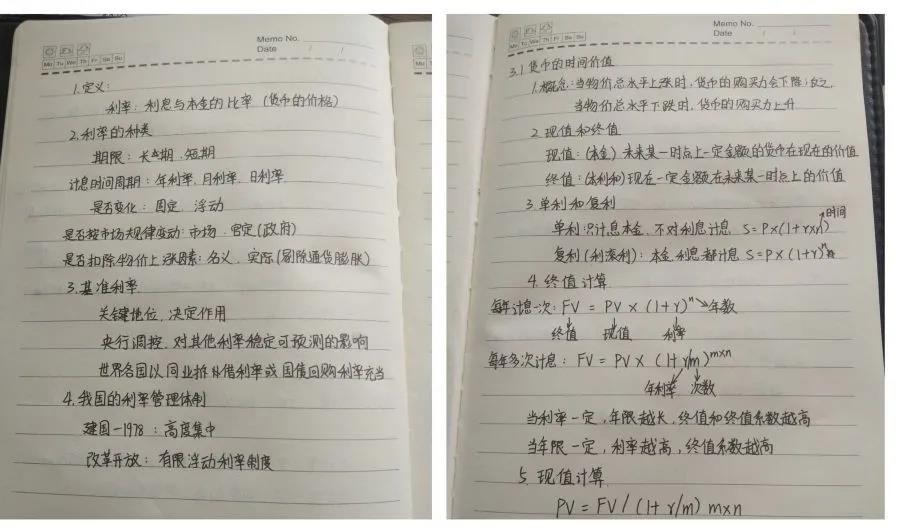 Memo No.
Date / /
Mo Tu We Th Fr Sa Su
1.定义:
利率: 利息与本金的比率 (货币的价格)
2.利率的种类
期限: 长期 短期
计息时间周期: 年利率、月利率、日利率
是否变化: 固定、浮动
是否按市场规律变动: 市场、官定(政府)
是否扣除物价上涨因素: 名义、实际(剔除通货膨胀)
3.基准利率
关键地位、决定作用
央行调控、对其他利率稳定可预测的影响
世界各国以同业拆借利率或国债回购利率充当
4.我国的利率管理体制
建国-1978: 高度集中
改革开放: 有限浮动利率制度
Memo No.
Date / /
Mo Tu We Th Fr Sa Su
3.1 货币的时间价值
1.概念: 当物价总水平上涨时,货币的购买力会下降;反之,
当物价总水平下跌时,货币的购买力上升
2.现值和终值
现值: (本金) 未来某一时点上一定金额的货币在现在的价值
终值: (本利和) 现在一定金额在未来某一时点上的价值
3.单利和复利
时间
单利: 只计息本金、不对利息计息 S=P×(1+r×n)
复利(利滚利): 本金、利息都计息 S=P×(1+r)ⁿ
4.终值计算
每年计息一次: FV = PV × (1+r)ⁿ→年数
终值 现值 利率
每年多次计息: FV = PV × (1+r/m)^m×n
年利率 次数
当利率一定,年限越长、终值和终值系数越高
当年限一定,利率越高,终值系数越高
5.现值计算
PV = FV / (1+r/m) m×n